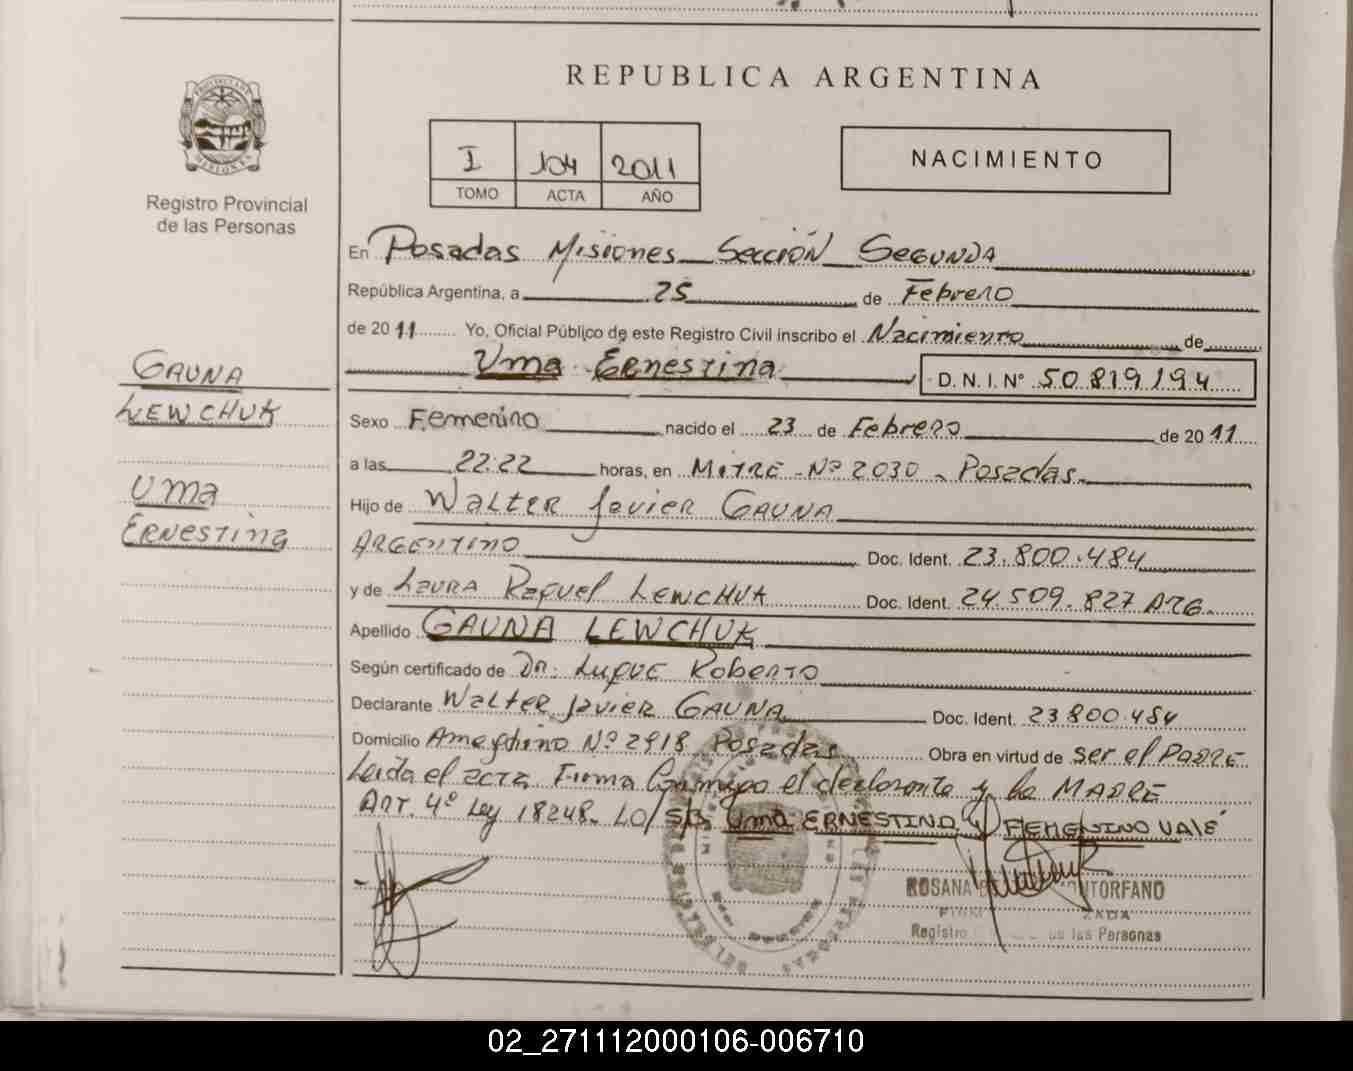 REPUBLICA ARGENTINA
PROVINCIA DE MISIONES
Registro Provincial
de las Personas
I 104 2011
TOMO ACTA AÑO
NACIMIENTO
GAUNA
LEWCHUK
Uma
ERNESTINA
En Posadas Misiones Sección SEGUNDA
República Argentina, a 25 de Febrero
de 2011 Yo, Oficial Público de este Registro Civil inscribo el Nacimiento de
Uma Ernestina D.N.I. N° 50.819.194
Sexo Femenino nacido el 23 de Febrero de 2011
a las 22:22 horas, en MITRE Nº 2030 - Posadas.
Hijo de Walter Javier GAUNA
ARGENTINO Doc. Ident. 23.800.484
y de Laura Raquel LEWCHUK Doc. Ident. 24.509.827 ARG.
Apellido GAUNA LEWCHUK
Según certificado de Dr. Luque Roberto
Declarante Walter Javier GAUNA Doc. Ident. 23.800.484
Domicilio Nº 2918 Posadas Obra en virtud de Ser el PADRE
Leida el acta Firma Conmigo el declarante y la MADRE
Art. 4º Ley 18248. LO/ S/B Uma ERNESTINA y FEMENINO VALE
ROSANA
Registro de las Personas
02_271112000106-006710